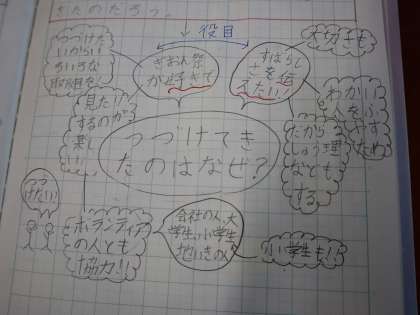 きたのだろう。
↓役目
つづけた
いからい
ろいろな
取組を!
ぎおん祭
が好きで
すばらし
さを伝
えたい!
大切さも
見たけ
するのが
楽し
い
つづけてき
たのはなぜ?
わかい
人をふ
やすため
だから
しゅう理
なども
する。
つづ
けたい!
ボランティア
の人とも
協力!!
会社の人、大
学生、小学生
地いきの人
小学生も!!